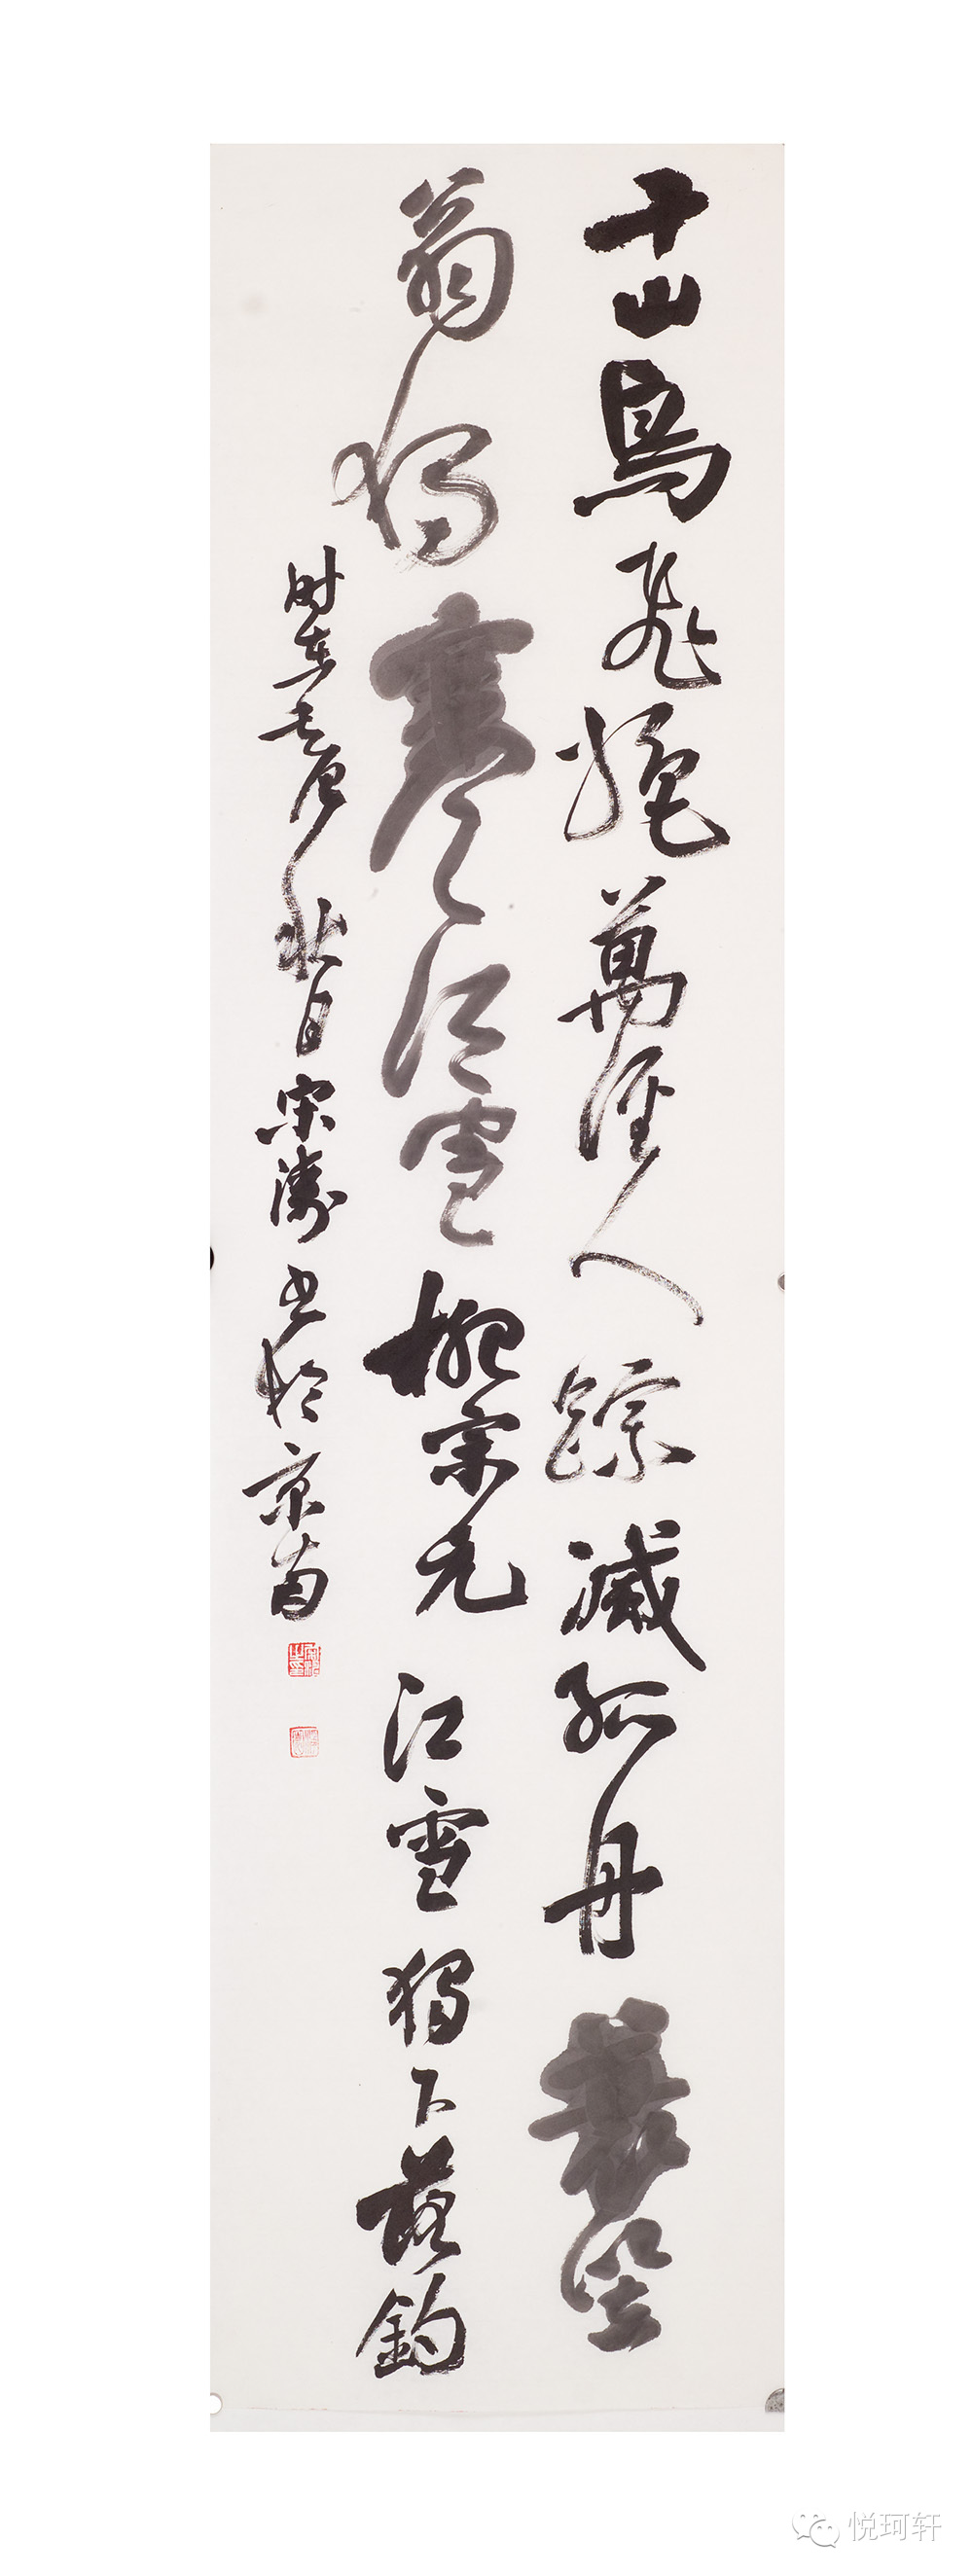 千山鳥飛絕萬徑人踪滅孤舟蓑笠
翁獨寒江雪柳宗元江雪獨下落釣
时在壬辰秋月宋濤书於京南
悦珂轩